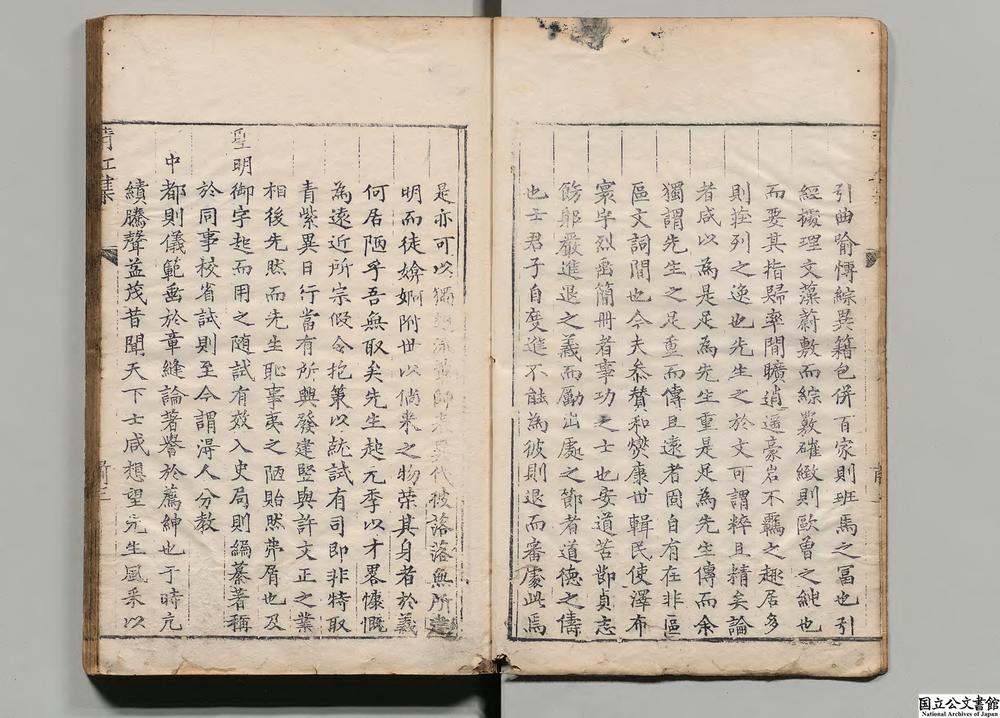 引曲喻慱綜異籍包併百家則班馬之冨也引
經摭理文藻蔚敷而綜覈確緻則歐曽之純也
而要其指歸率閒曠逍遥豪宕不羈之趣居多
則莊列之逸也先生之於文可謂粹且精矣論
者咸以為是足為先生重是足為先生傳而余
獨謂先生之足重而傳且逺者固自有在非區
區文詞間也今夫叅賛和爕康世輯民使澤布
寰宇烈垂簡冊者事功之士也安道苦節貞志
飭躬嚴進退之義而勵出處之節者道徳之儔
也士君子自度進不能為彼則退而審處此焉
是亦可以獨 代彼落落無所建
明而徒媕婀附世以倘來之物荣其身者於義
何居陋乎吾無取矣先生起元季以才畧慷慨
為逺近所宗假令抱䇿以就試有司即非特取
青紫異日行當有所興發建竪與許文正之業
相後先然而先生耻事夷之陋貽然弗屑也及
聖明御宇起而用之随試有效入史局則編纂著稱
於同事校省試則至今謂淂人分教
中都則儀範垂於章縫論著譽於薦紳也于時亢
績騰聲益茂昔聞天下士咸想望先生風采以
清江集
前三
国立公文書館
National Archives of Japan